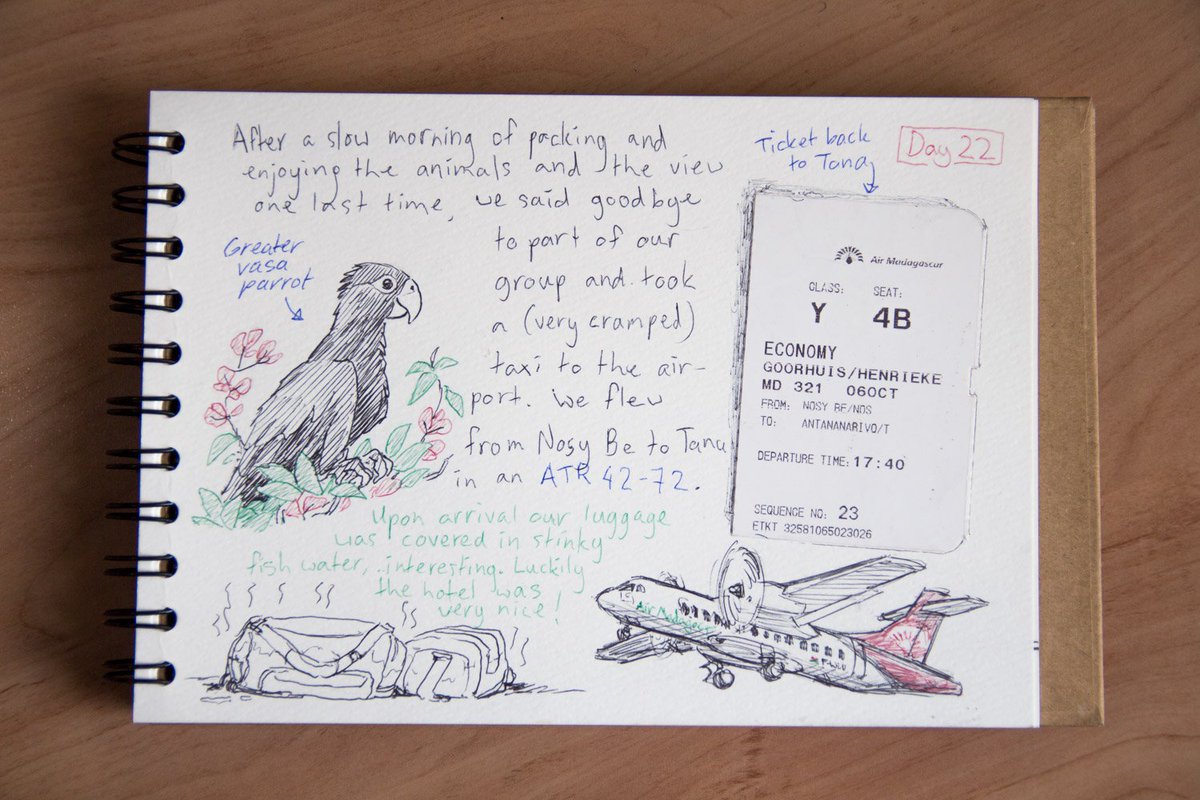 After a slow morning of packing and
enjoying the animals and the view
one last time, we said goodbye
to part of our
group and took
a (very cramped)
taxi to the air-
port. We flew
from Nosy Be to Tana
in an ATR 42-72.
Greater
vasa
parrot
Upon arrival our luggage
was covered in stinky
fish water, ..interesting. Luckily
the hotel was
very nice!
Ticket back
to Tana
Day 22
Air Madagascar
CLASS: SEAT:
Y 4B
ECONOMY
GOORHUIS/HENRIEKE
MD 321 06OCT
FROM: NOSY BE/NOS
TO: ANTANANARIVO/T
DEPARTURE TIME: 17:40
SEQUENCE NO: 23
ETKT 32581065023026
Air Madagascar